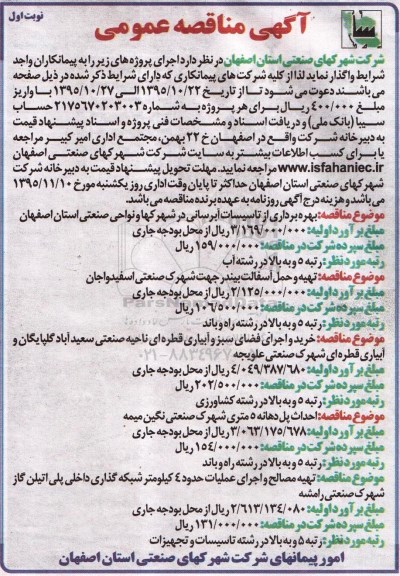 نوبت اول
آگهی مناقصه عمومی
شرکت شهرکهای صنعتی استان اصفهان در نظر دارد اجرای پروژه های زیر را به پیمانکاران واجد
شرایط واگذار نماید لذا از کلیه شرکت های پیمانکاری که دارای شرایط ذکر شده در ذیل صفحه
می باشند دعوت می شود تا از تاریخ ۱۳۹۵/۱۰/۲۲ الی ۱۳۹۵/۱۰/۲۷ با واریز
مبلغ ۴۰۰/۰۰۰ ریال برای هر پروژه به شماره ۲۱۷۵۶۷۰۲۰۳۰۰۳ حساب
سیبا (بانک ملی) و دریافت اسناد و مشخصات فنی پروژه و اسناد پیشنهاد قیمت
به دبیرخانه شرکت واقع در اصفهان خ ۲۲ بهمن، مجتمع اداری امیر کبیر مراجعه
یا برای کسب اطلاعات بیشتر به سایت شرکت شهرکهای صنعتی اصفهان
www.isfahaniec.ir مراجعه نمایید. مهلت تحویل پیشنهاد قیمت به دبیرخانه شرکت
شهرکهای صنعتی استان اصفهان حداکثر تا پایان وقت اداری روز یکشنبه مورخ ۱۳۹۵/۱۱/۱۰
می باشد و هزینه درج آگهی روزنامه به عهده برنده مناقصه می باشد.
موضوع مناقصه: بهره برداری از تاسیسات آبرسانی در شهرکها و نواحی صنعتی استان اصفهان
مبلغ برآورد اولیه: ۳/۱۶۹/۰۰۰/۰۰۰ ریال از محل بودجه جاری
مبلغ سپرده شرکت در مناقصه: ۱۵۹/۰۰۰/۰۰۰ ریال
رتبه مورد نظر: رتبه ۵ و به بالا در رشته آب
موضوع مناقصه: تهیه و حمل آسفالت بیندر جهت شهرک صنعتی اسفیدواجان
مبلغ برآورد اولیه: ۲/۱۲۵/۰۰۰/۰۰۰ ریال از محل بودجه جاری
مبلغ سپرده شرکت در مناقصه: ۱۰۶/۵۰۰/۰۰۰ ریال
رتبه مورد نظر: رتبه ۵ و به بالا در رشته راه و باند
موضوع مناقصه: خرید و اجرای فضای سبز و آبیاری قطره ای ناحیه صنعتی سعید آباد گلپایگان و
آبیاری قطره ای شهرک صنعتی علویجه
مبلغ برآورد اولیه: ۴/۰۴۹/۳۸۷/۶۸۰ ریال از محل بودجه جاری
مبلغ سپرده شرکت در مناقصه: ۲۰۲/۵۰۰/۰۰۰ ریال
رتبه مورد نظر: رتبه ۵ و به بالا در رشته کشاورزی
موضوع مناقصه: احداث پل دهانه ۵ متری شهرک صنعتی نگین میمه
مبلغ برآورد اولیه: ۳/۰۶۳/۱۷۵/۶۷۸ ریال از محل بودجه جاری
مبلغ سپرده شرکت در مناقصه: ۱۵۴/۰۰۰/۰۰۰ ریال
رتبه مورد نظر: رتبه ۵ و به بالا در رشته راه و باند
موضوع مناقصه: تهیه مصالح و اجرای عملیات حدود ۴ کیلومتر شبکه گذاری داخلی پلی اتیلن گاز
شهرک صنعتی رامشه
مبلغ برآورد اولیه: ۲/۶۱۳/۱۳۴/۰۸۰ ریال از محل بودجه جاری
مبلغ سپرده شرکت در مناقصه: ۱۳۱/۰۰۰/۰۰۰ ریال
رتبه مورد نظر: رتبه ۵ و به بالا در رشته تاسیسات و تجهیزات
امور پیمانهای شرکت شهرکهای صنعتی استان اصفهان